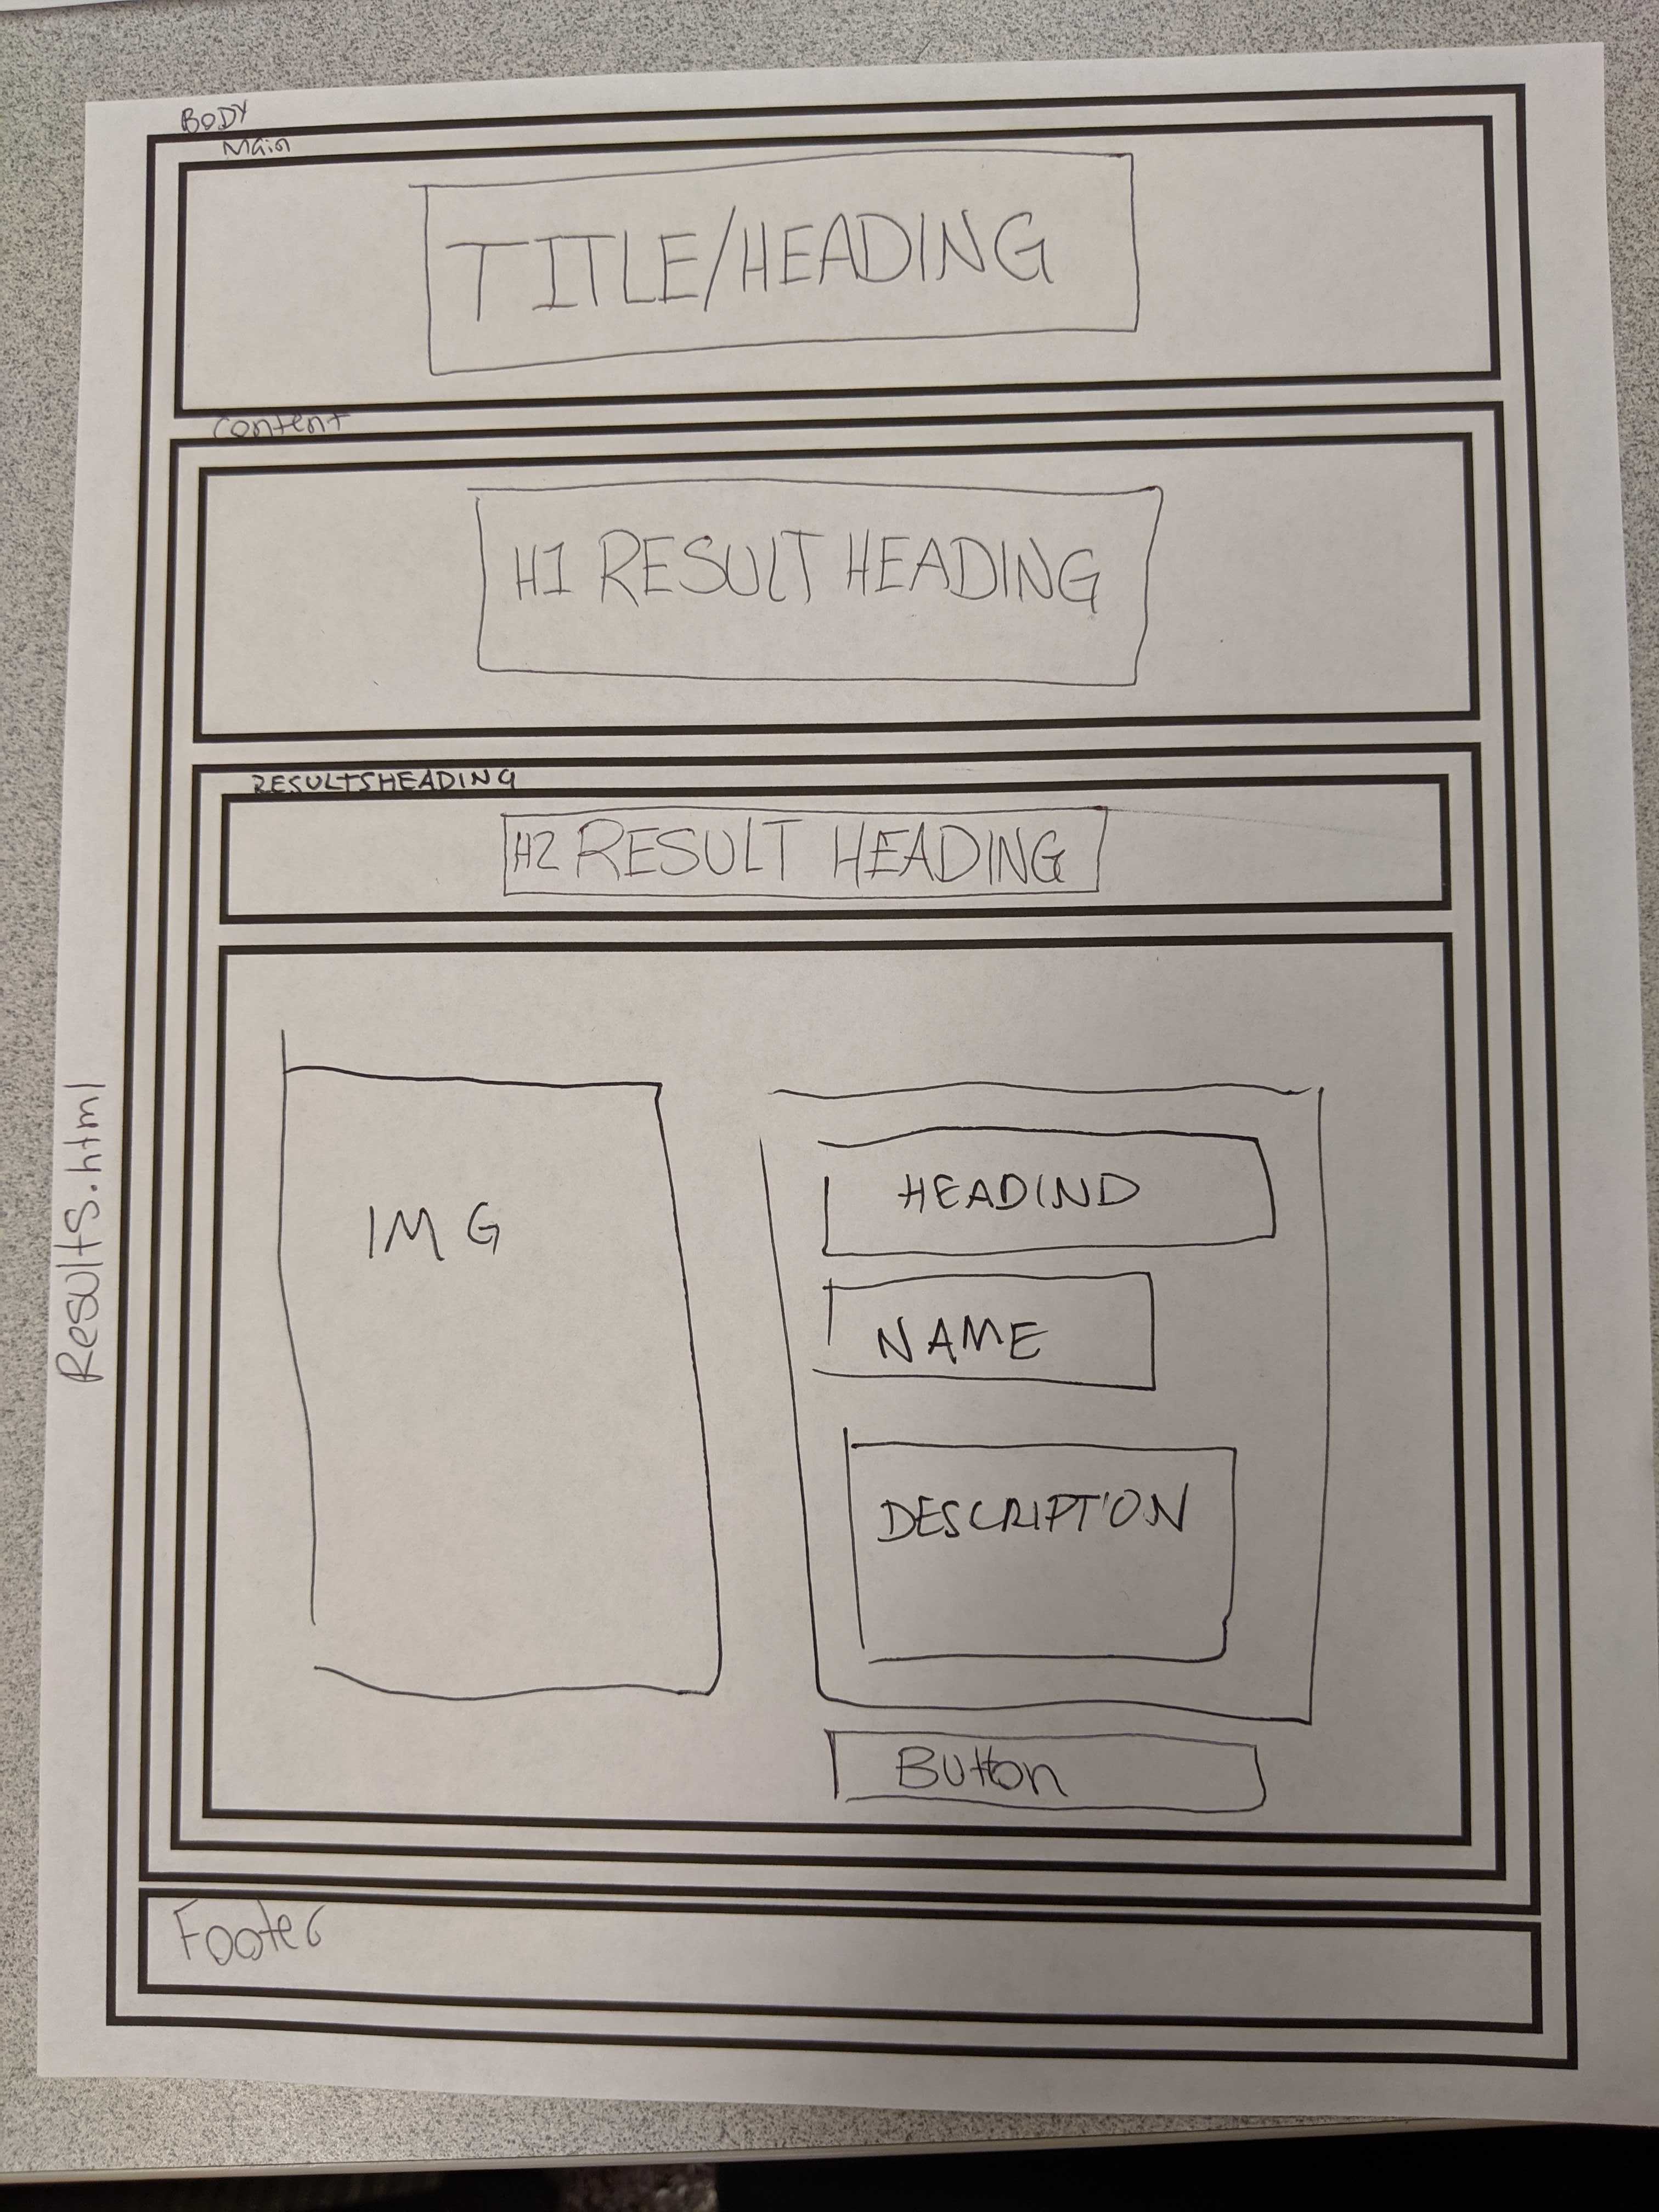 BODY
Main
TITLE/HEADING
Content
H1 RESULT HEADING
RESULTSHEADING
H2 RESULT HEADING
IMG
HEADIND
NAME
DESCRIPTION
Button
Footer
Results.html